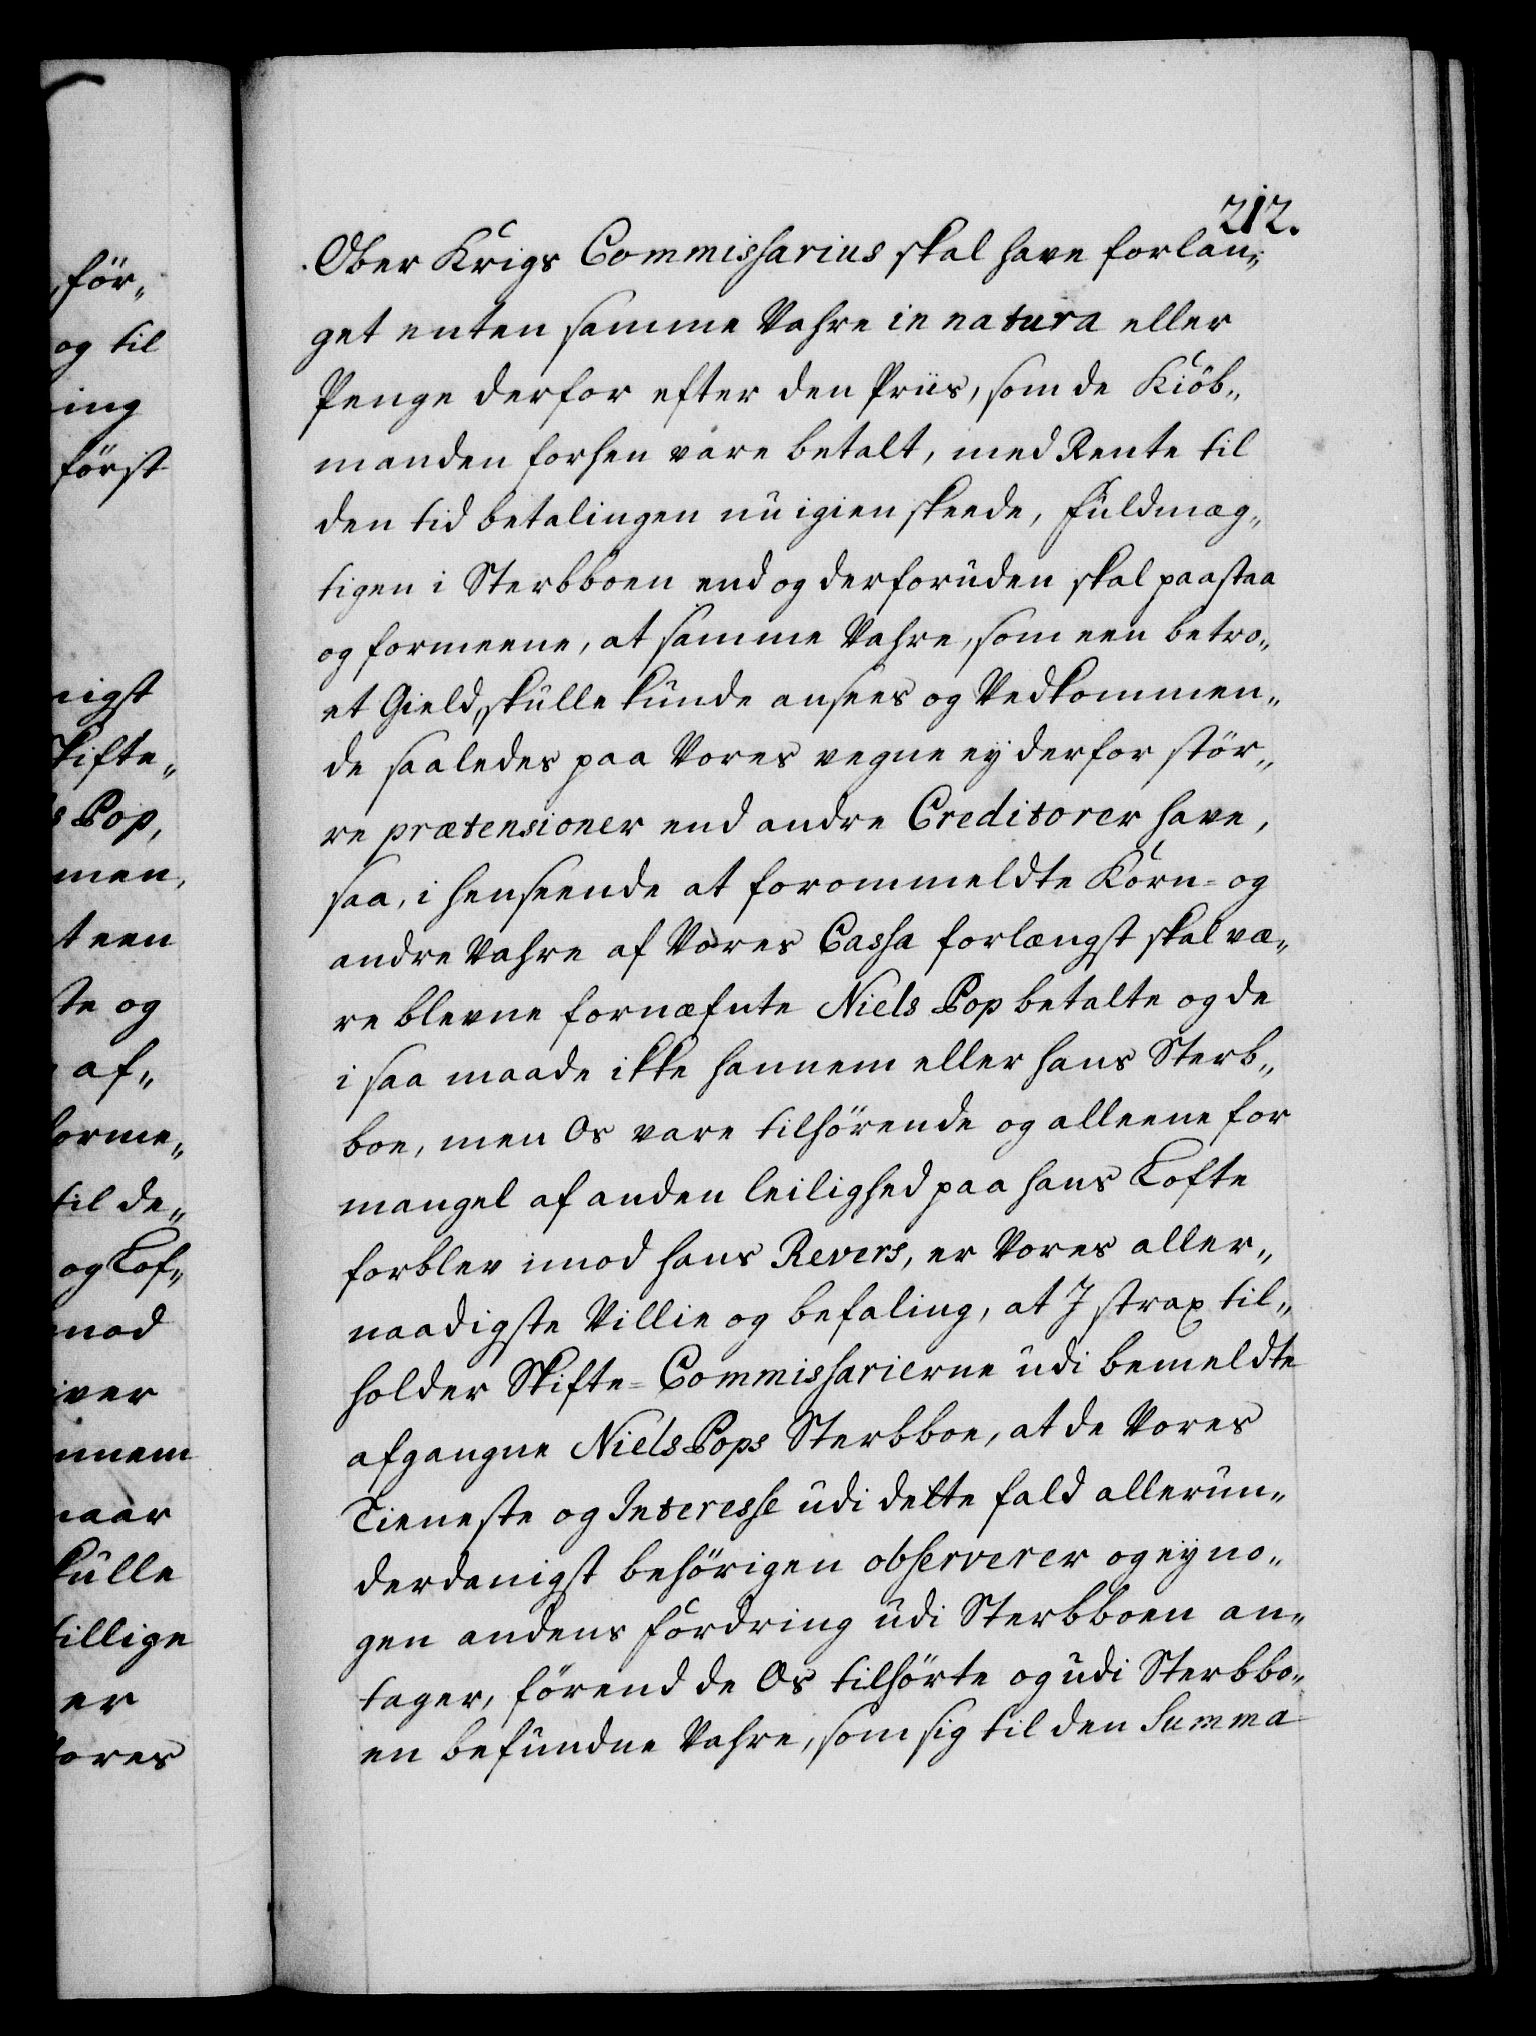 för„
og til
ing
först
nigst
kifte„
s Pop,
men,
t een
te og
af„
orme„
til de„
og Lof„
mod
iver
nnem
naar
kulle
tillige
er
ores
212.
Ober Krigs Commissarius skal have forlan„
get enten samme Vahre in natura eller
Penge derfor efter den Priis, som de Kiöb„
manden forhen vare betalt, med Rente til
den tid betalingen nu igien skeede, Fuldmæg„
tigen i Sterbboen end og derforuden skal paastaa
og formeene, at samme Vahre, som een betro„
et Gield, skulle kunde ansees og Vedkommen„
de saaledes paa Vores vegne ey derfor stör„
re prætensioner end andre Creditorer have,
saa, i henseende at forommeldte Korn- og
andre Vahre af Vores Cassa forlængst skal væ„
re blevne fornæfnte Niels Pop betalte og de
i saa maade ikke hannem eller hans Sterb„
boe, men Os vare tilhörende og alleene for
mangel af anden leilighed paa hans Lofte
forblev imod hans Revers, er Vores aller„
naadigste Villie og befaling, at I strax til„
holder Skifte-Commissarierne udi bemeldte
afgangne Niels Pops Sterbboe, at de Vores
Tieneste og Interesse udi dette fald allerun„
derdanigst behörigen observerer og ey no„
gen andens fordring udi Sterbboen an„
tager, förend de Os tilhörte og udi Sterbbo„
en befundne Vahre, som sig til den Summa